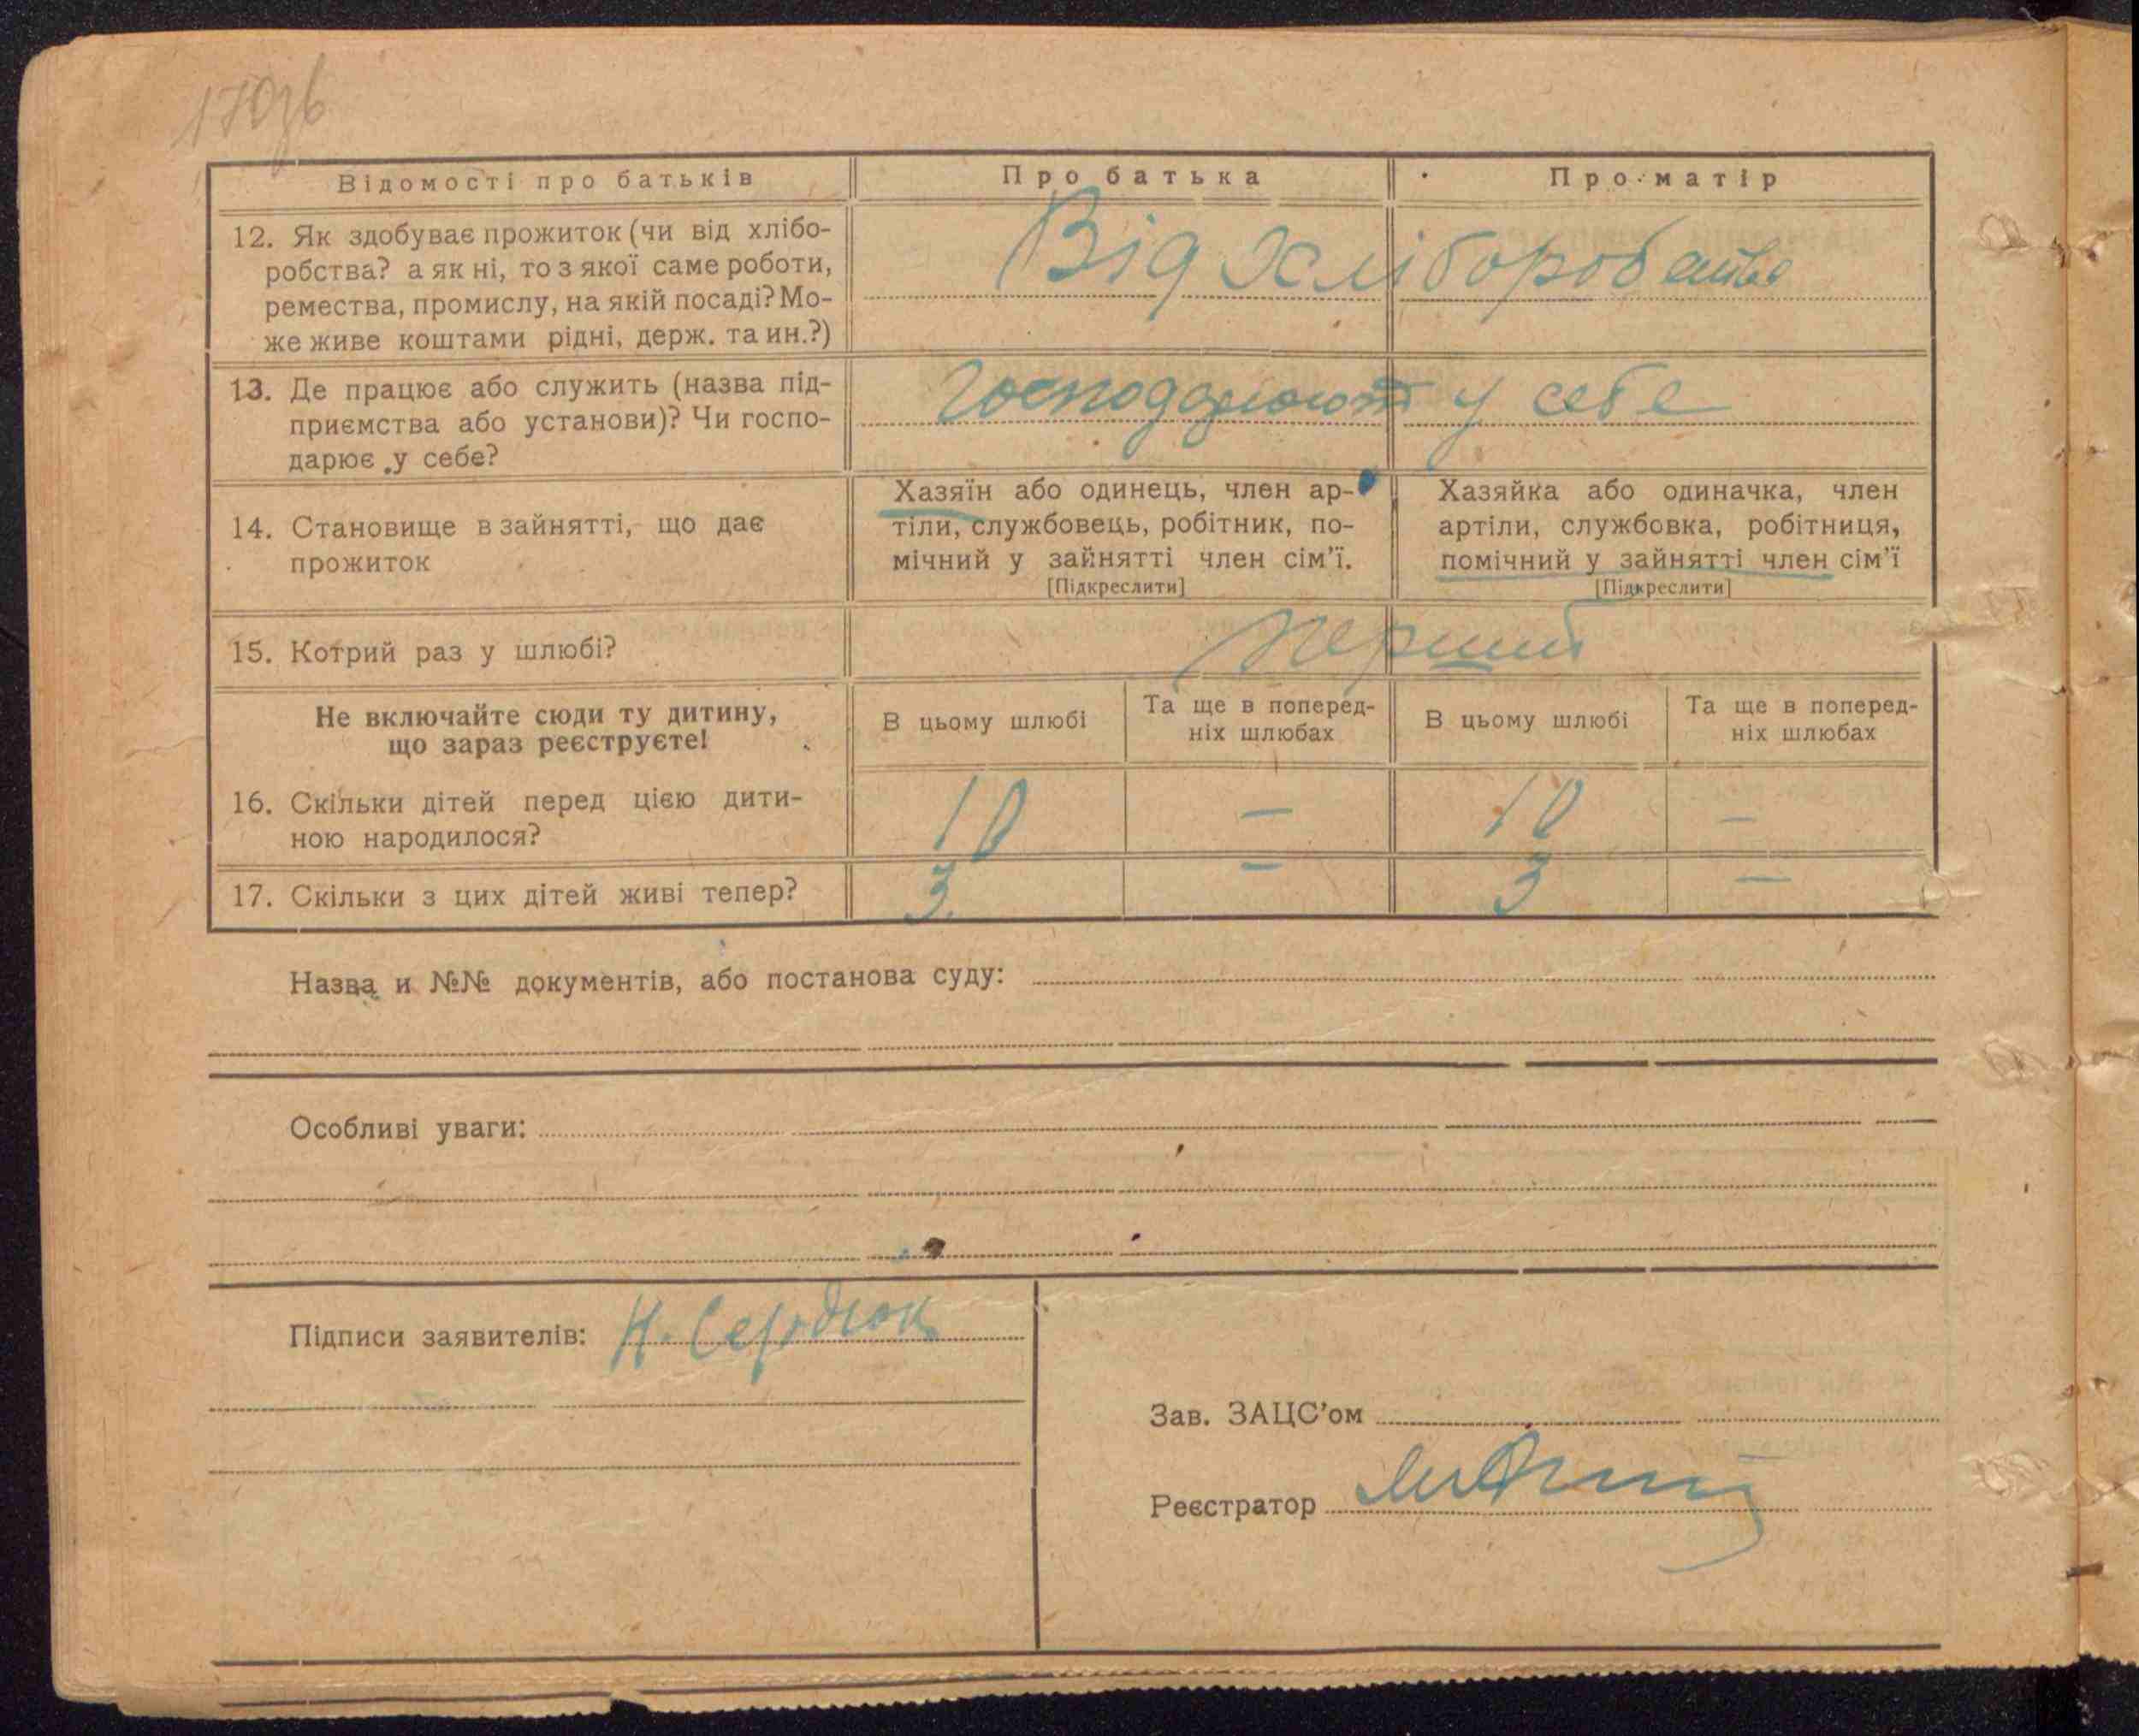 170зв
Відомості про батьків
Про батька
Про матір
12. Як здобуває прожиток (чи від хлібо-
робства? а як ні, то з якої саме роботи,
ремества, промислу, на якій посаді? Мо-
же живе коштами рідні, держ. та ин.?)
Від хліборобства
13. Де працює або служить (назва під-
приємства або установи)? Чи госпо-
дарює у себе?
Господарюють у себе
14. Становище в зайнятті, що дає
прожиток
Хазяїн або одинець, член ар-
тіли, службовець, робітник, по-
мічний у зайнятті член сім’ї.
[Підкреслити]
Хазяйка або одиначка, член
артіли, службовка, робітниця,
помічний у зайнятті член сім’ї
[Підкреслити]
15. Котрий раз у шлюбі?
Перший
Не включайте сюди ту дитину,
що зараз реєструєте!
В цьому шлюбі
Та ще в поперед-
ніх шлюбах
В цьому шлюбі
Та ще в поперед-
ніх шлюбах
16. Скільки дітей перед цією дити-
ною народилося?
10 — 10 —
17. Скільки з цих дітей живі тепер?
3. — 3 —
Назва и №№ документів, або постанова суду:
Особливі уваги:
Підписи заявителів: Н. Сердюк
Зав. ЗАЦС’ом
Реєстратор